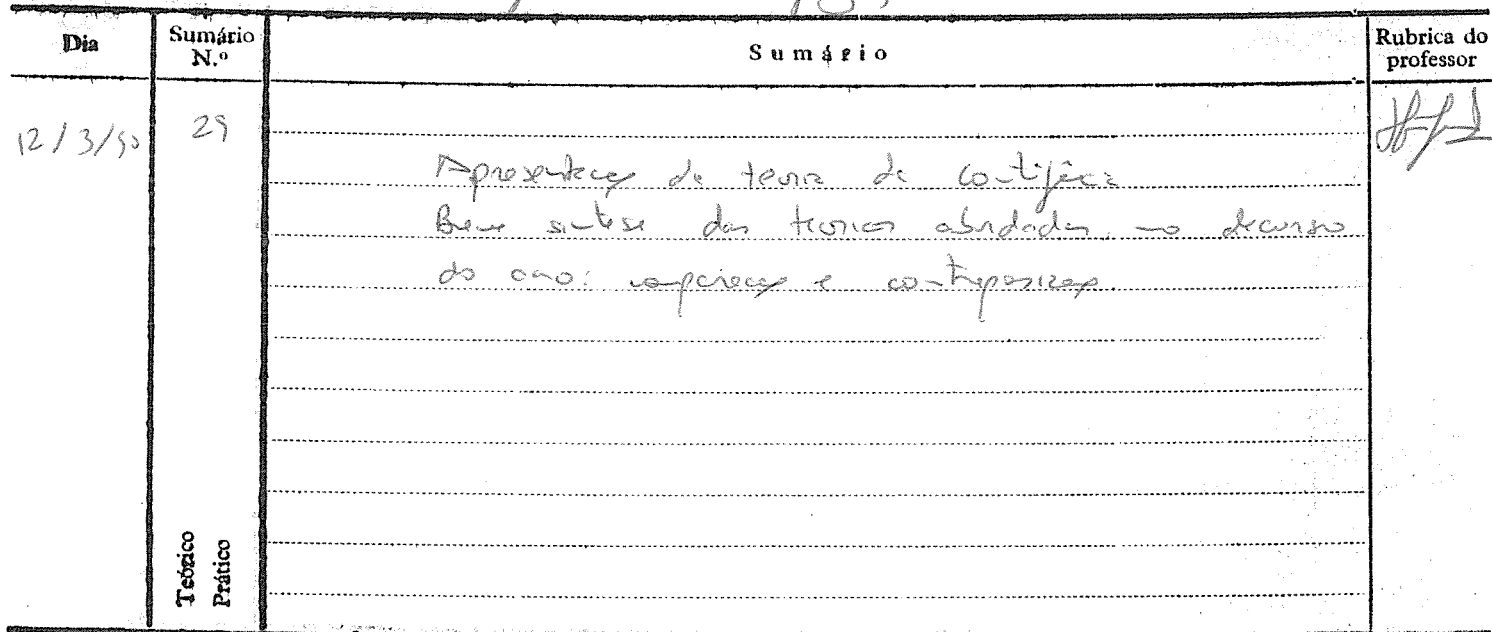 Dia
Sumário N.º
Sumário
Rubrica do professor
12/3/90
29
Apresentação da teoria da contigência
Breve sintese das teorias abordadas no decurso
do ano: comparação e contraposição.
Teórico
Prático